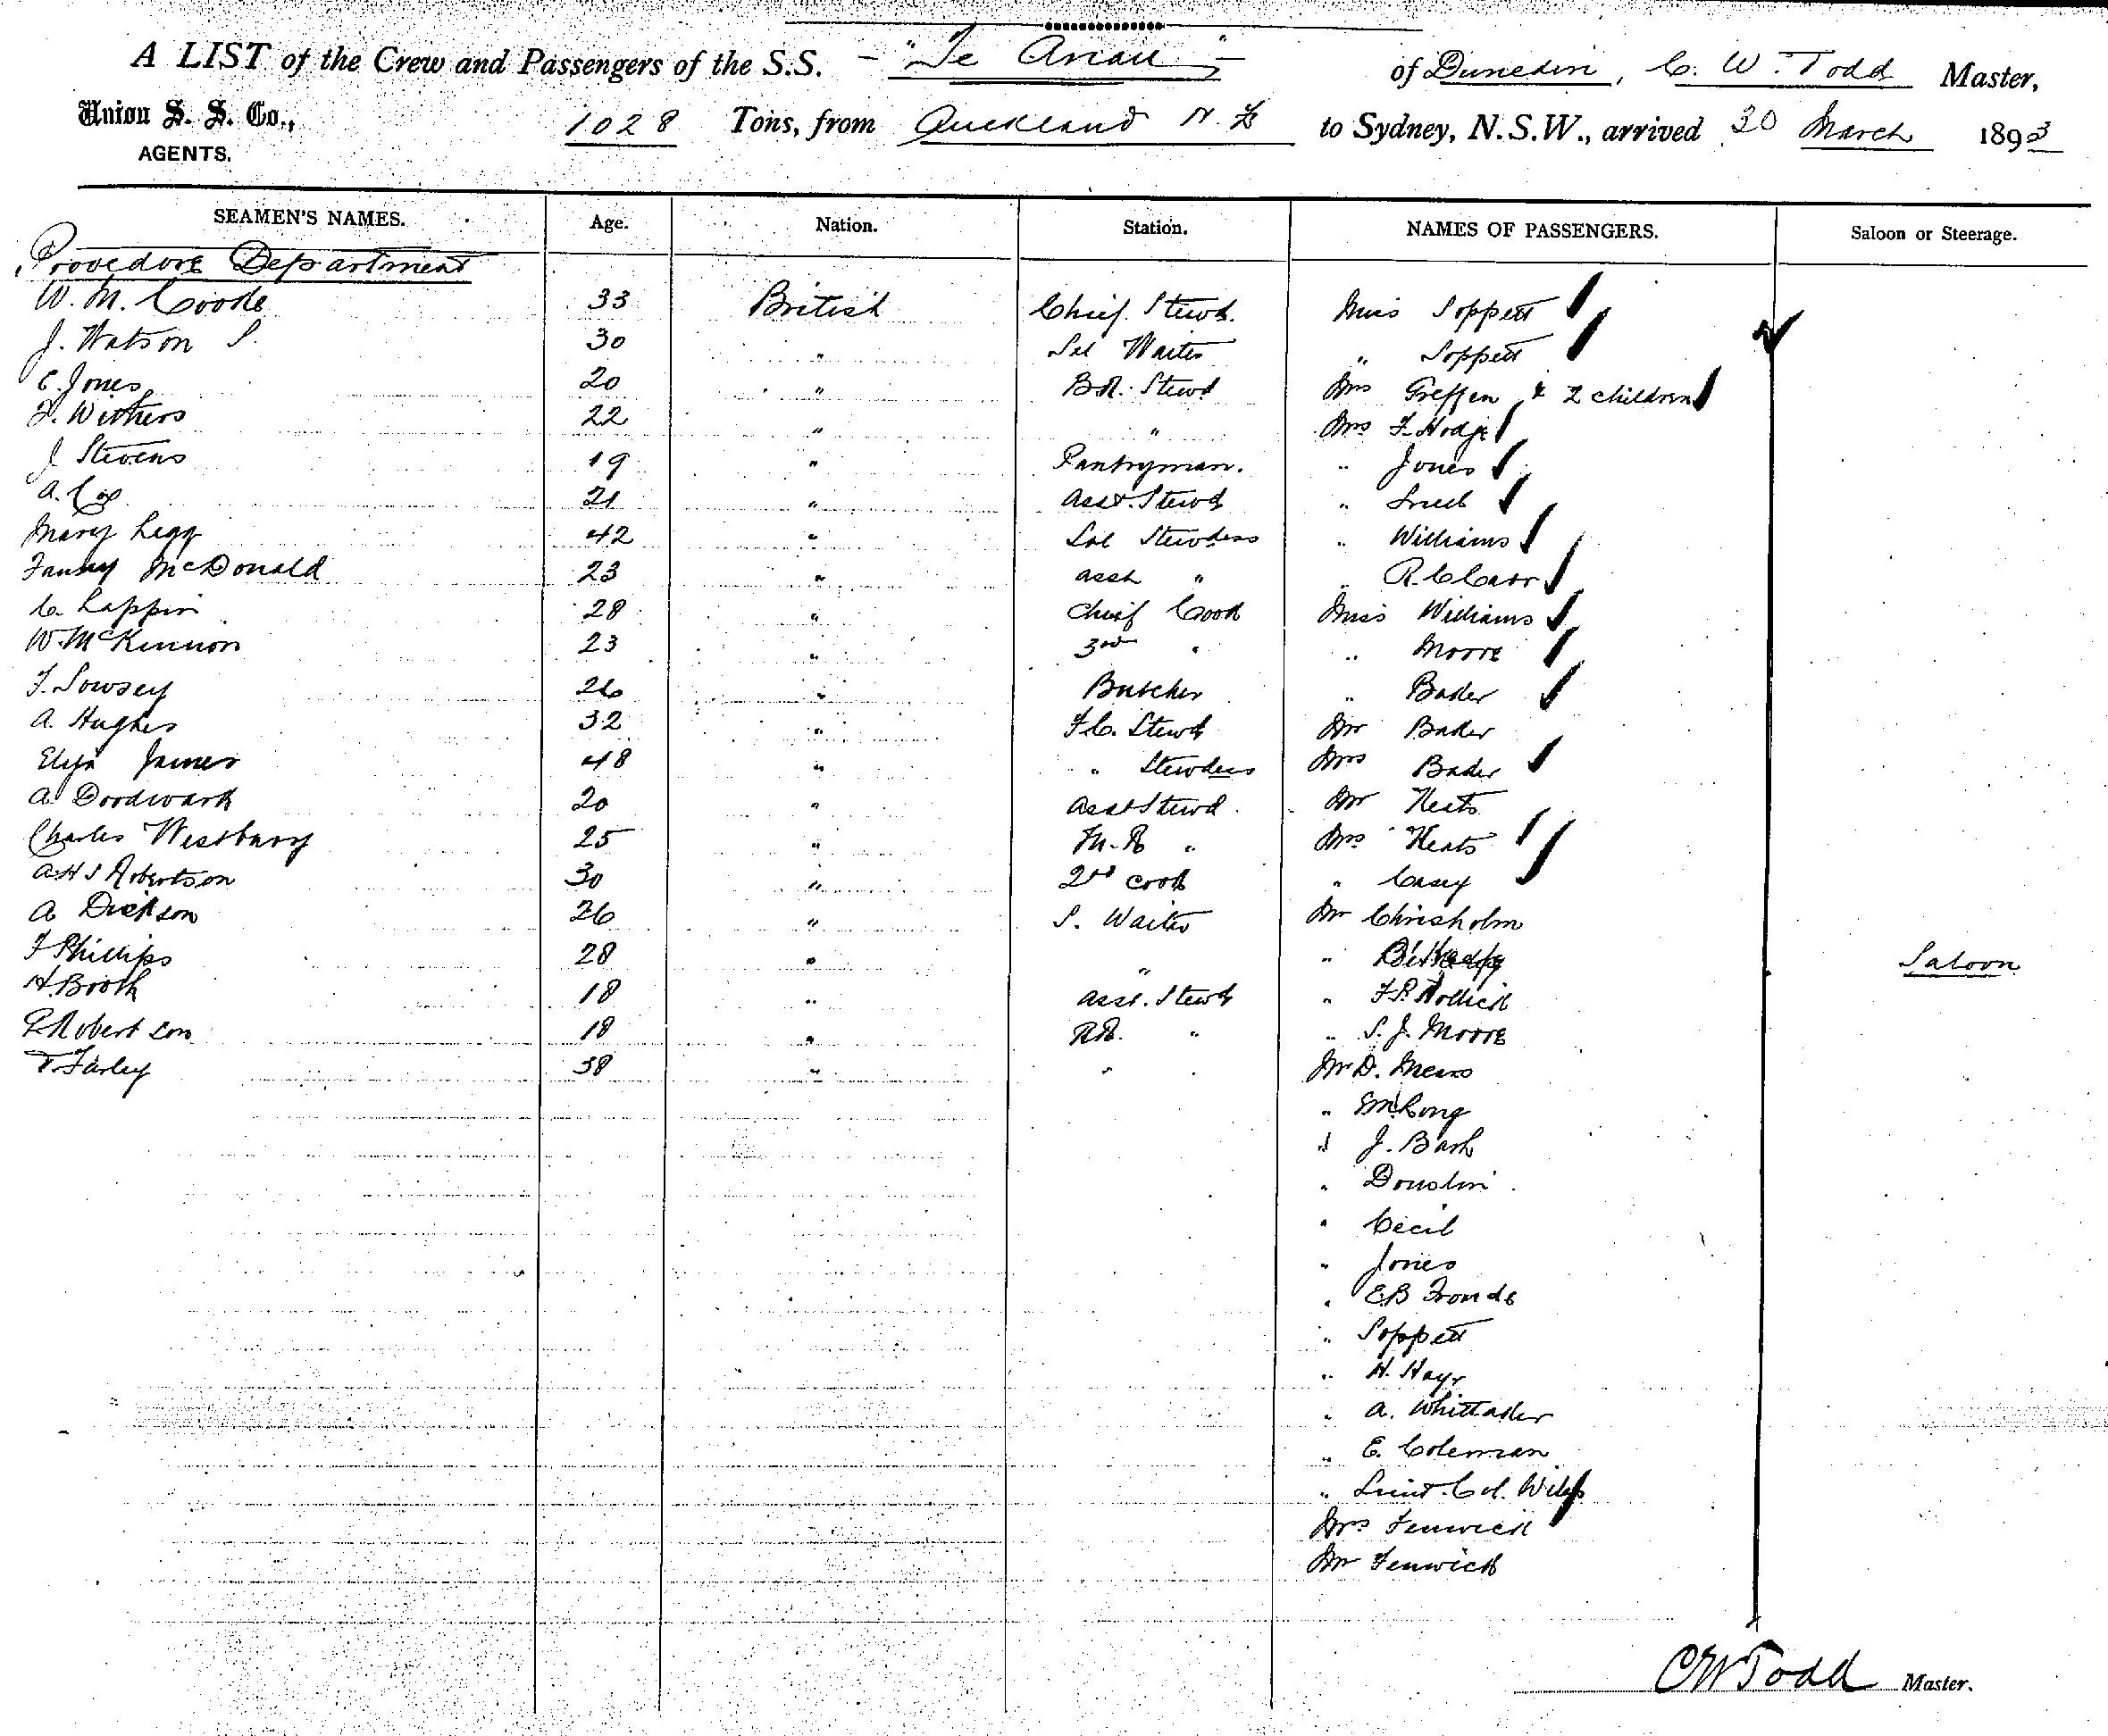 A LIST of the Crew and Passengers of the S.S. - "Te Anau" - of Dunedin, C. W. Todd Master,
Union S. S. Co., 1028 Tons, from Auckland N. Z to Sydney, N.S.W., arrived 30 March 1893
AGENTS.
SEAMEN'S NAMES. Age. Nation. Station. NAMES OF PASSENGERS. Saloon or Steerage.
Provedore Department
W. M. Coode 33 British Chief Stewd. Miss Soppett
J. Watson S. 30 " Sal Waiter " Soppett
E. Jones 20 " B.R. Stewd Mrs Greffen & 2 children
F. Withers 22 " " Mrs F. Hodge
J Stevens 19 " Pantryman. " Jones
A. Cox 21 " Asst. Stewd "
Mary Legg 42 " Sal Stewdess " Williams
Fanny McDonald 23 " Asst " " R. C Carr
C. Lappin 28 " Chief Cook Miss Williams
W. McKinnon 23 " 3rd " " Moore
F. Sowsey 26 " Butcher " Bader
A. Hughes 32 " F.C. Stewd Mr Bader
Eliza James 48 " " Stewdess Mrs Bader
A. Doodward 20 " Asst Stewd Mr Keats
Charles Westbury 25 " M. R " Mrs Keats
A H S Robertson 30 " 2nd Cook " Casey
A Dickson 26 " S. Waiter Mr Chrisholm
F Phillips 28 " " " Saloon
H. Booth 18 " Asst. Stewd " F. R. Hollick
P Robertson 18 " RR. " " S. J. Moore
T. Farley 38 " " Mr D. Mears
" Long
" J. Bark
" Douslin
" Cecil
" Jones
" E B Fronde
" Soppett
" H. Hayr
" A. Whittaker
" E. Coleman
" Lieut. Col. Wilks
Mrs Fenwick
Mr Fenwick
C W Todd Master.